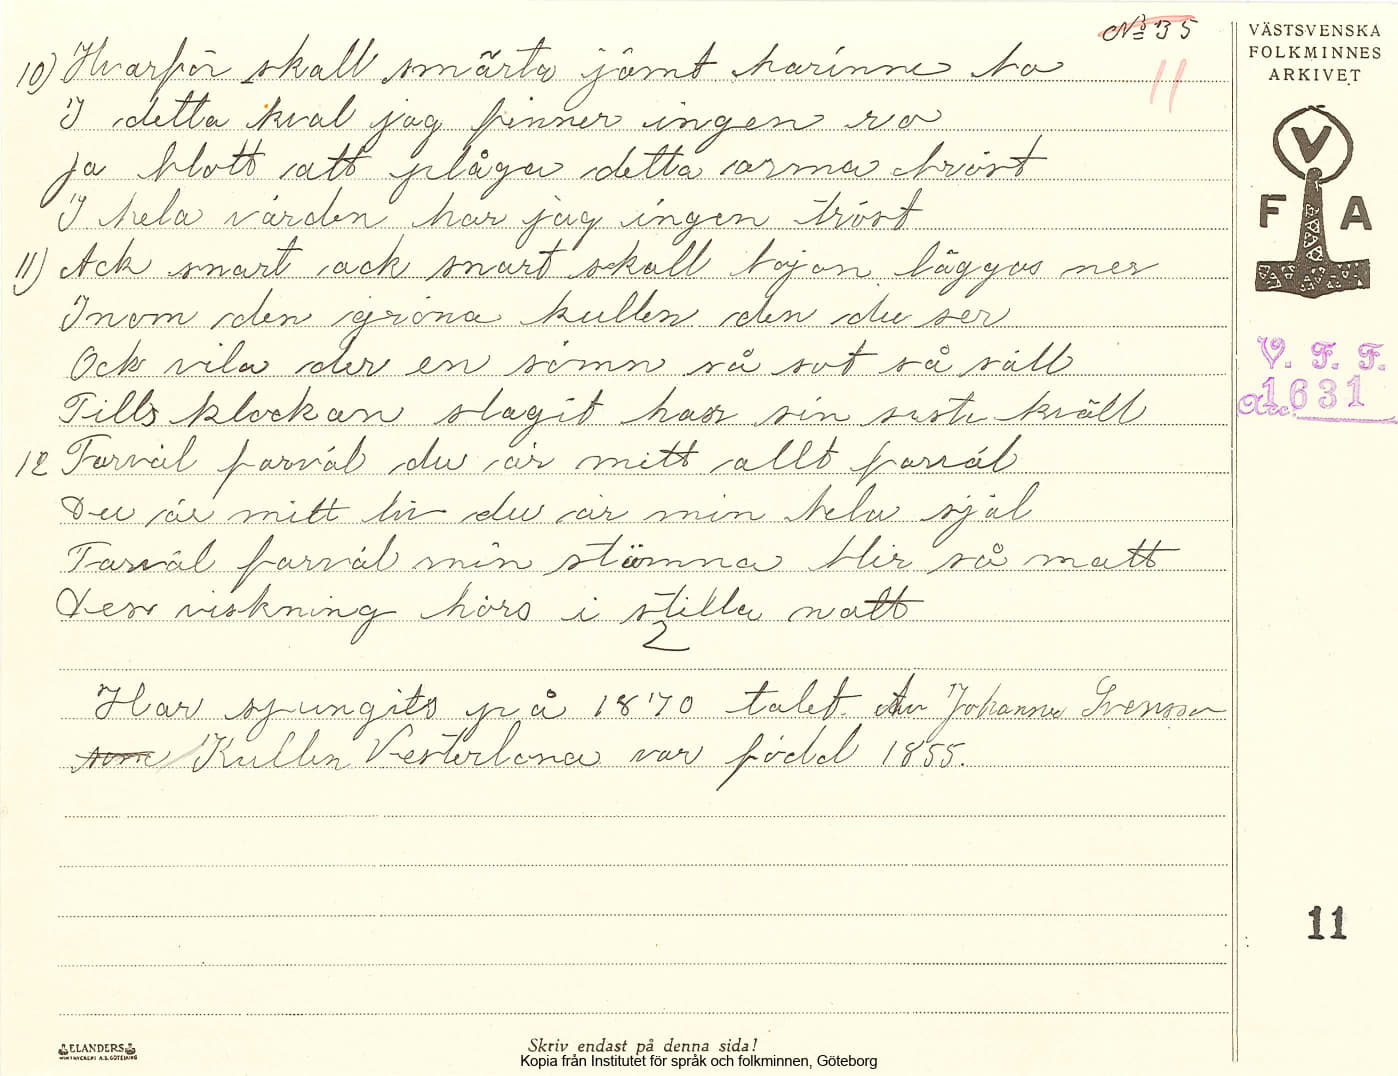 No 35
11
VÄSTSVENSKA
FOLKMINNES
ARKIVET
V
F A
V. F. F.
Acc. 1631
11
10) Hvarför skall smärta jämt härinne bo
I detta kval jag finner ingen ro
Ja blott att plåga detta arma bröst
I hela värden har jag ingen tröst
11) Ack snart ack snart skall bojan läggas ner
Inom den gröna kullen den du ser
Ock vila der en sömn så söt så säll
Tills klockan slagit har sin sista kväll
12 Farväl farväl du är mitt allt farväl
Du är mitt liv du är min hela själ
Farväl farväl min stämna blir så matt
Des viskning hörs i stilla natt
2
Har sjungits på 1870 talet. Av Johanna Svensson
Kullen Vesterlana var född 1855.
ELANDERS
Skriv endast på denna sida!
Kopia från Institutet för språk och folkminnen, Göteborg